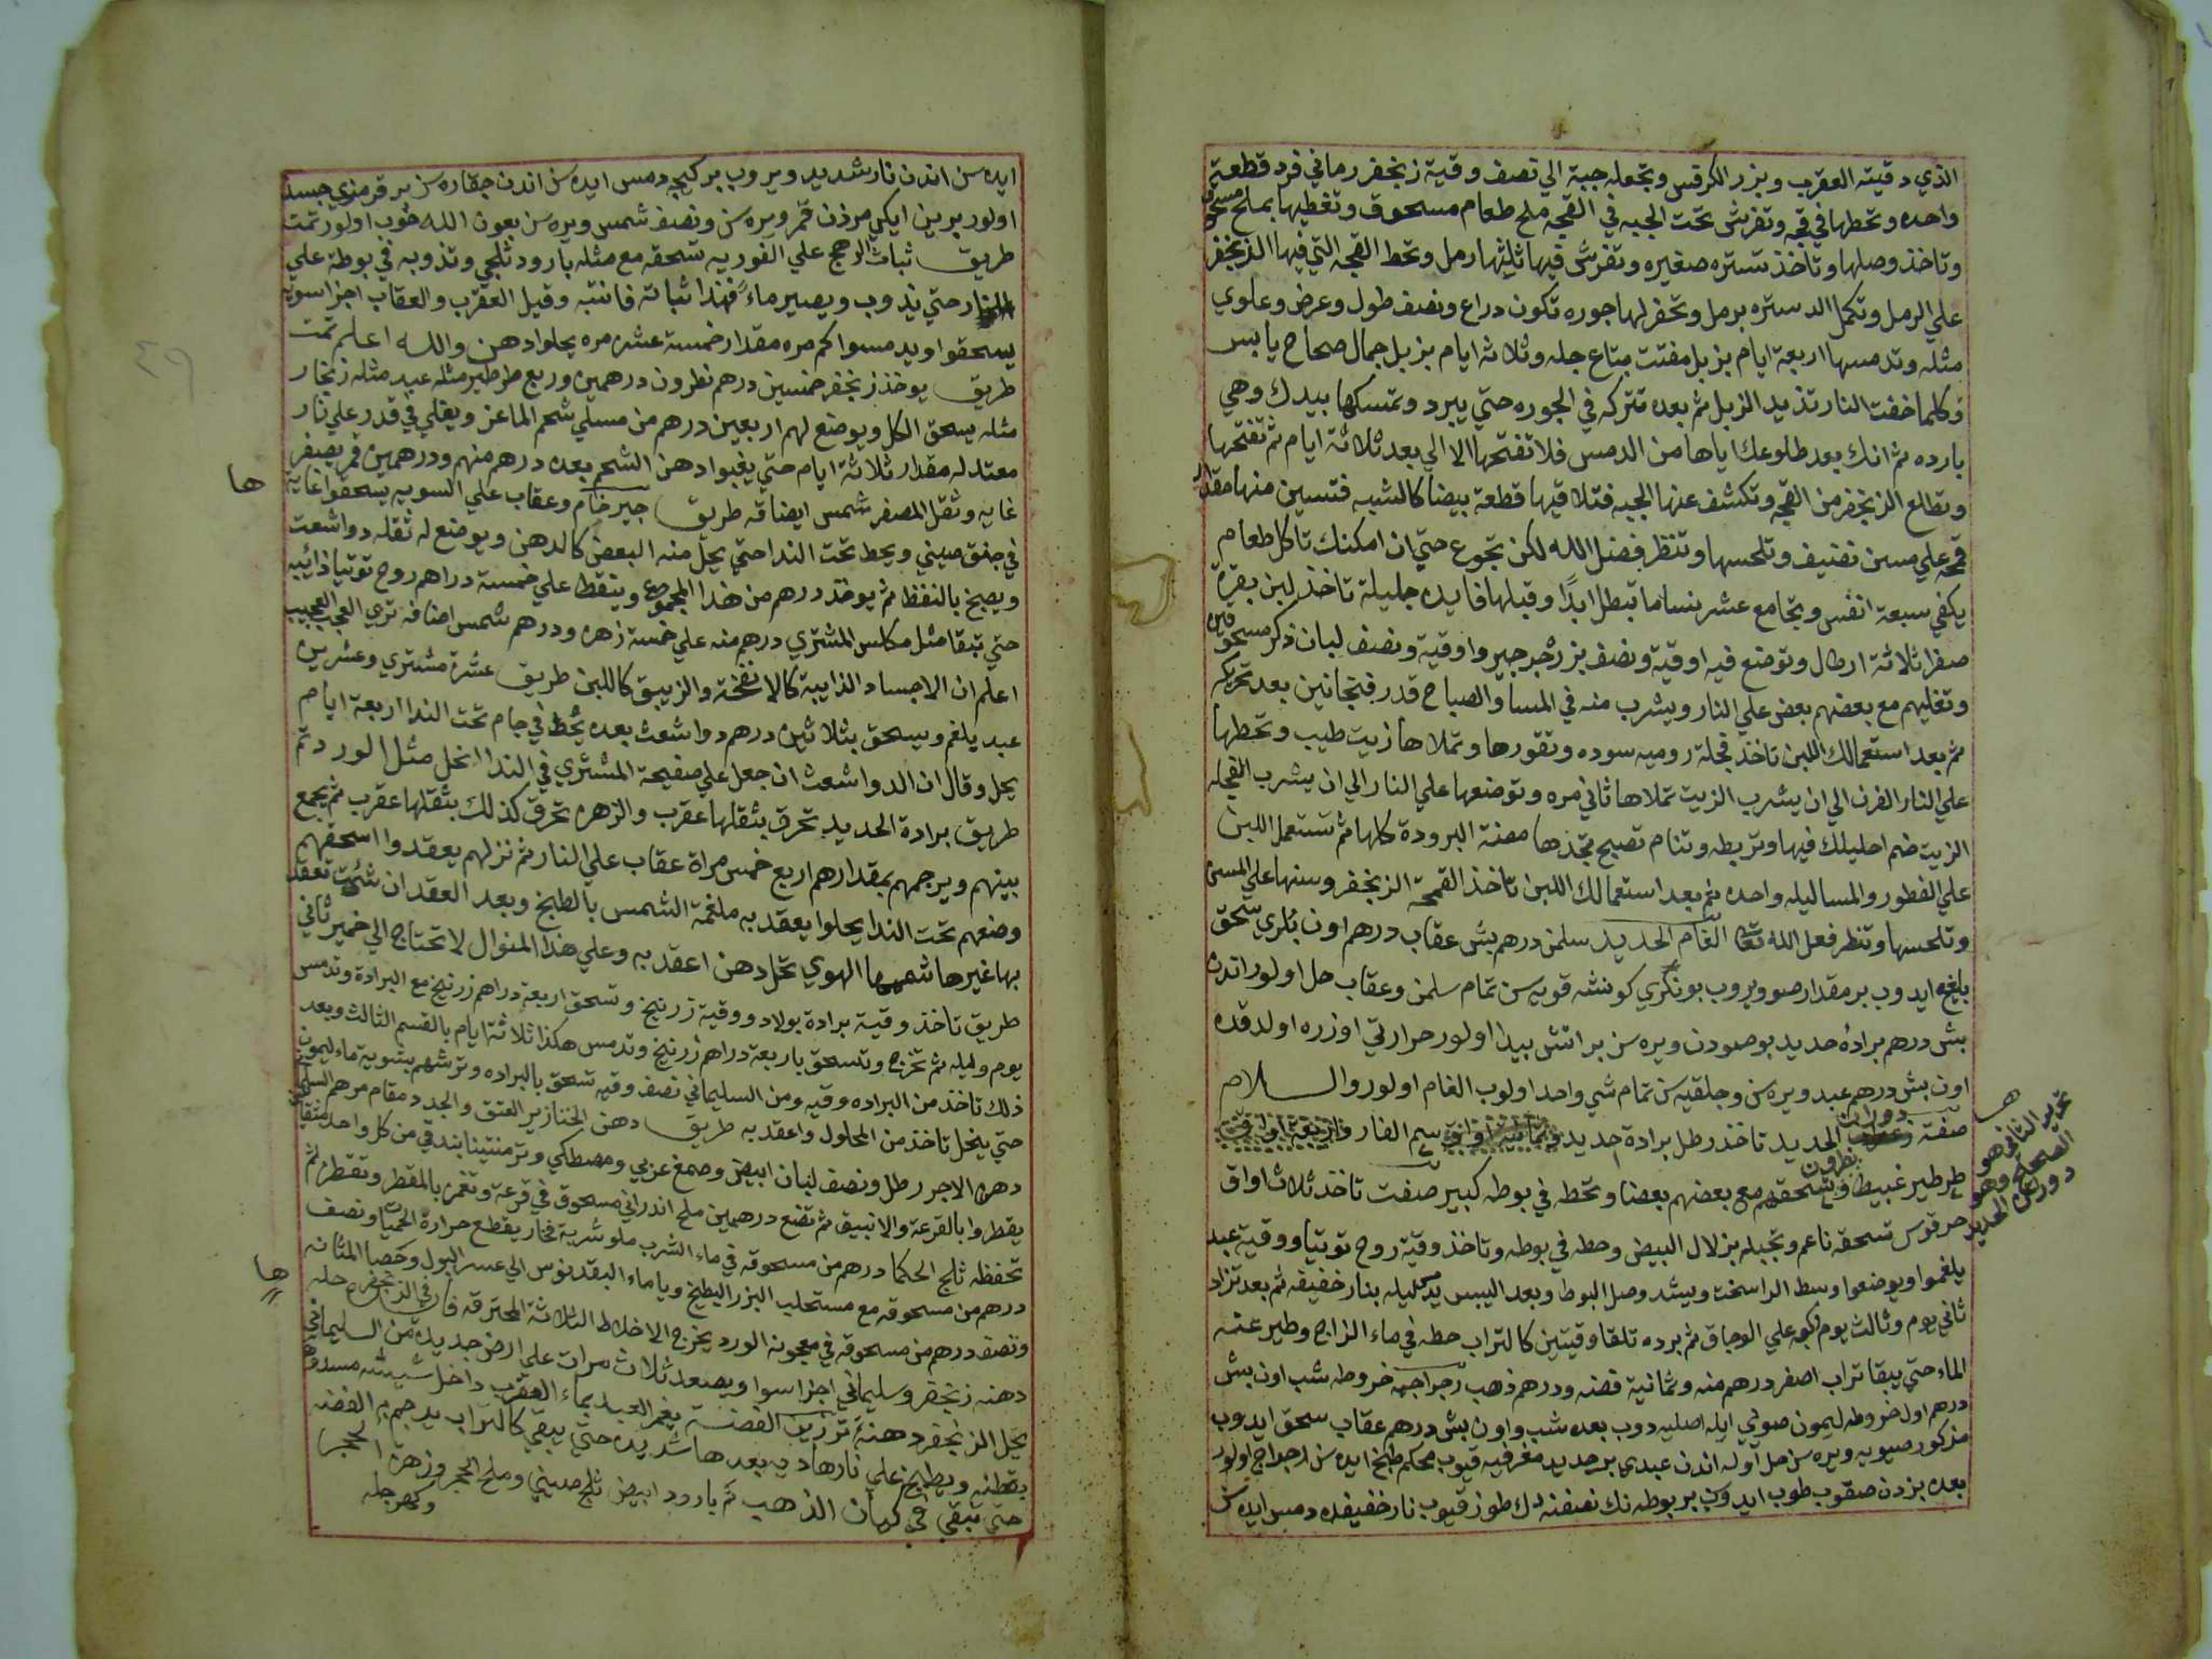 الذي دقيته العقرب وبزر الكرفس وتجعله جبة الي نصف وقية زنجفر رماني فرد قطعة
واحده وتحطها في قبجه وتفرش تحت الجبه في القبجه ملح طعام مسحوق وتغطيها بملح مسحوق
وتاخذ وصلها وتاخذ دستره صغيره وتفرش فيها ثلثها رمل وتحط القبجه التي فيها الزنجفر
علي الرمل وتكمل الدستره برمل وتحفر لها جوره تكون دراع ونصف طول وعرض وعلوي
مثله وتدمسها اربعة ايام بزبل مفتت بتاع جله وثلاثه ايام بزبل جمال صحاح يابس
وكلما خفت النار تذيد الزبل ثم بعده تتركه في الجوره حتي يبرد وتمسكها بيدك وهي
بارده ثم انك بعد طلوعك اياها من الدمس فلا تفتحها الا الي بعد ثلاثة ايام ثم تفتحها
وتطالع الزنجفر من القبجه وتكشف عنها الجبه فتلاقيها قطعة بيضا كالشبه فتسين منها مقدار
قمحه علي مسن نضيف وتلحسها وتنظر فضل الله لكن تجوع حتي ان امكنك تاكل طعام
يكفي سبعة انفس وتجامع عشر نسا ما تبطل ابدًا وقبلها فايده جليلة تاخذ لبن بقرة
صفرا ثلاثة ارطال وتوضع فيه اوقية ونصف بزر جرجير واوقية ونصف لبان ذكر مسحوقين
وتغليهم مع بعضهم بعض علي النار ويشرب منه في المسا والصباح قدر فنجانين بعد تحريكه
ثم بعد استعمالك اللبن تاخذ فجلة روميه سوده وتقورها وتملاها زيت طيب وتحطها
علي النار الفرن الي ان يشرب الزيت تملاها ثاني مره وتوضعها علي النار الي ان يشرب الفجله
الزيت ضم احليلك فيها وتربطه وتنام تصبح تجدها مصنة البرودة كلها ثم تستعمل اللبن
علي الفطور والمسا ليله واحده ثم بعد استعمالك اللبن تاخذ القمحة الزنجفر وسنها علي المسن
وتلحسها وتنظر فعل الله تعا الغام الحديد سلمن درهم بش عقاب درهم اون بكري سحق
بليغ ايدوب بر مقدار صو ويروب بو نكري كونشه قويه سن تمام سلمن وعقاب حل اولور اندن
بش درهم برادهٔ حديد بو صودن ويره سن بر اتش پيدا اولور حرارتي اوزره اولدقده
اون بش درهم عبد ويره سن وجلقيه سن تمام شي واحد اولوب الغام اولور والسلام
صفة دوران الحديد تاخذ رطل برادة حديد وثمانية اواق سم الفار واربعة اواق
طرطير غبيط ونطرون وتسحقهم مع بعضهم بعضا وتحطه في بوطه كبير صفت تاخذ ثلاث اواق
حرقوس تسحقه ناعم وتجبله بزلال البيض وحطه في بوطه وتاخذ وقية روح توتيا ووقية عبد
يلغموا ويوضعوا وسط الراسخت ويشد وصل البوط وبعد اليبس يدمس ليله بنار خفيفه ثم بعد تزاد
ثاني يوم وثالث يوم كبه علي الوجاق ثم برده تلقا وقيتين كالتراب حطه في ماء الزاج وطير عنه
الماء حتي يبقا تراب اصفر درهم منه وثمانية فضه ودرهم ذهب رجراجه خروطه شب اون بش
درهم اول خروطه ليمون صوي ايله اصليه دوب بعده شب واون بش درهم عقاب سحق ايدوب
مذكور صويه ويره سن حل اوله اندن عبدي بر حديد مغرفيه قيوب محكم طبخ ايده سن رجراج اولور
بعده بزدن صقوب طوب ايدوب بر بوطه نك نصفنه دك طوز قيوب نار خفيفده دمس ايده سن
هـ
تحرير الثاني هو
الصحيح وهو
دوران الحديد
ايده سن اندن نار شديد ويروب بر كيجه دمس ايده سن اندن جقاره سن بر قرمزي جسد
اولور بريني ايكي مرذن قمر ويره سن ونصف شمس ويره سن بعون الله خوب اولور تمت
طريق ثبات الرهج علي الفوريه تسحقه مع مثله بارود ثلجي وتذوبه في بوطة علي
النار حتي يذوب ويصير ماءً فهذا ثباته فانتبه وقيل العقرب والعقاب اجزا سويه
يسحقوا ويدمسوا كم مره مقدار خمسة عشره مره يحلوا دهن والله اعلم تمت
طريق يوخذ زنجفر خمسين درهم نطرون درهمين وربع طرطير مثله عبد مثله زنجار
مثله يسحق الكل ويوضع لهم اربعين درهم من مسلي شحم الماعز ويغلي في قدر علي نار
معتدله مقدار ثلاثة ايام حتي يغيبوا دهن الشحم بعده درهم منهم ودرهمين قمر يصفر
غايه وثقل المصفر شمس ايضا قه طريق جير خام وعقاب علي السويه يسحقوا غايه
في حنق صيني ويحط تحت الندا حتي يحل منه البعض كالدهن ويوضع له ثقله دواشعت
ويصبح بالنفط ثم يوخذ درهم من هذا المجموع وينقط علي خمسة دراهم روح توتيا ذائبه
حتي تبقا مثل مكلس المشتري درهم منه علي خمسة زهره ودرهم شمس اضافه تري العجب العجيب
اعلم ان الاجساد الذايبة كالانفخة والزيبق كاللبن طريق عشرة مشتري وعشرين
عبد يلغم ويسحق بثلاثين درهم دواشعث بعده يُحط في جام تحت الندا اربعة ايام
يحل وقال ان الدواشعث ان جعل علي صفيحة المشتري في الندا انحل مثل الورد تم
طريق برادة الحديد تحرق بثقلها عقرب والزهره تحرق كذلك بثقلها عقرب ثم يجمع
بينهم ويرجمهم بمقدارهم اربع خمس مراة عقاب علي النار ثم نزلهم يعقدوا اسحقهم
وضعهم تحت الندا يحلوا يعقد به ملغمة الشمس بالطبخ وبعد العقد ان شئت تعقد
بها غيرها شمها الهوي تحل دهن اعقد به وعلي هذا المنوال لا تحتاج الي خمير ثاني
طريق تاخذ وقية برادة بولاد ووقية زرنيخ وتسحق اربعة دراهم زرنيخ مع البرادة وتدمس
يوم وليله ثم تخرج وتسحق باربعة دراهم زرنيخ وتدمس هكذا ثلاثة ايام بالقسم الثالث وبعد
ذلك تاخذ من البراده وقيه ومن السليماني نصف وقيه تسحق بالبراده وترشهم بشوية ماء ليمون
حتي ينحل تاخذ من المحلول واعقد به طريق دهن الخنازير العتق والجدد مقام مرهم السليماني
دهن الاجر رطل ونصف لبان ابيض وصمغ عربي ومصطكي وترمنتينا بندقي من كل واحد مثقال
يقطروا بالقرعة والانبيق ثم تضع درهمين ملح اندراني مسحوق في قرعة وتغمر بالمقطر وتقطر ثم
تحفظه ثلج الحكما درهم من مسحوقه في ماء الشرب ملو شربة فخار يقطع حرارة الحميات ونصف
درهم من مسحوقه مع مستحلب البزر البطيخ ويا ماء البقدنوس الي عسر البول وحصا المثانه
ونصف درهم من مسحوقه في معجونة الورد يخرج الاخلاط الثلاثة المحترقه في الزنجفر وحله
دهنه زنجفر وسليماني اجزا سوا ويصعد ثلاث مرات علي ارض جديدة من السليماني
يحل الزنجفر دهنة تزريف الفضة يغمر العبد بماء العقرب داخل شيشه مسدوده
بقطنه ويطبخ علي نار هاديه بعدها شديده حتي يبقي كالتراب يرجم به الفضه
حتي تبقي في كيان الذهب تم بارود ابيض ثلج صيني وملح الحجر وزهرة الحجر
وكحر جله
ها
ها